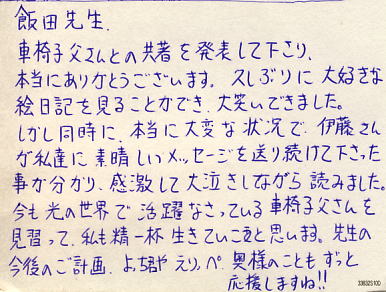 飯田先生、
車椅子父さんとの共著を発表して下さり、
本当にありがとうございます。久しぶりに大好きな
絵日記を見ることができ、大笑いできました。
しかし同時に、本当に大変な状況で、伊藤さん
が私達に素晴しいメッセージを送り続けて下さった
事が分かり、感激して大泣きしながら読みました。
今も光の世界で活躍なさっている車椅子父さんを
見習って、私も精一杯生きていこうと思います。先生の
今後のご計画、よっちゃんやえりっぺ、奥様のこともずっと
応援しますね!!
338325100